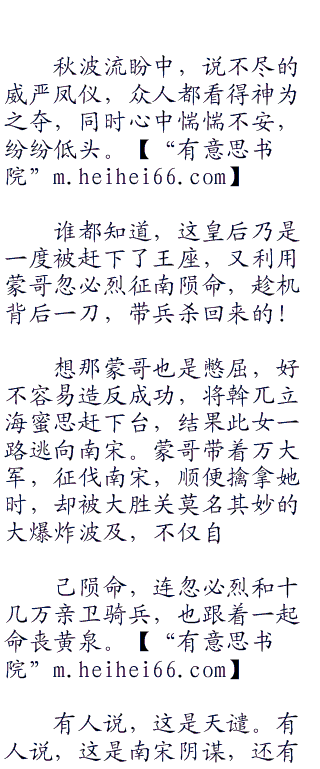 秋波流盼中，说不尽的
威严凤仪，众人都看得神为
之夺，同时心中惴惴不安，
纷纷低头。【“有意思书
院”m.heihei66.com】
谁都知道，这皇后乃是
一度被赶下了王座，又利用
蒙哥忽必烈征南陨命，趁机
背后一刀，带兵杀回来的！
想那蒙哥也是憋屈，好
不容易造反成功，将斡兀立
海蜜思赶下台，结果此女一
路逃向南宋。蒙哥带着万大
军，征伐南宋，顺便擒拿她
时，却被大胜关莫名其妙的
大爆炸波及，不仅自
己陨命，连忽必烈和十
几万亲卫骑兵，也跟着一起
命丧黄泉。【“有意思书
院”m.heihei66.com】
有人说，这是天谴。有
人说，这是南宋阴谋，还有